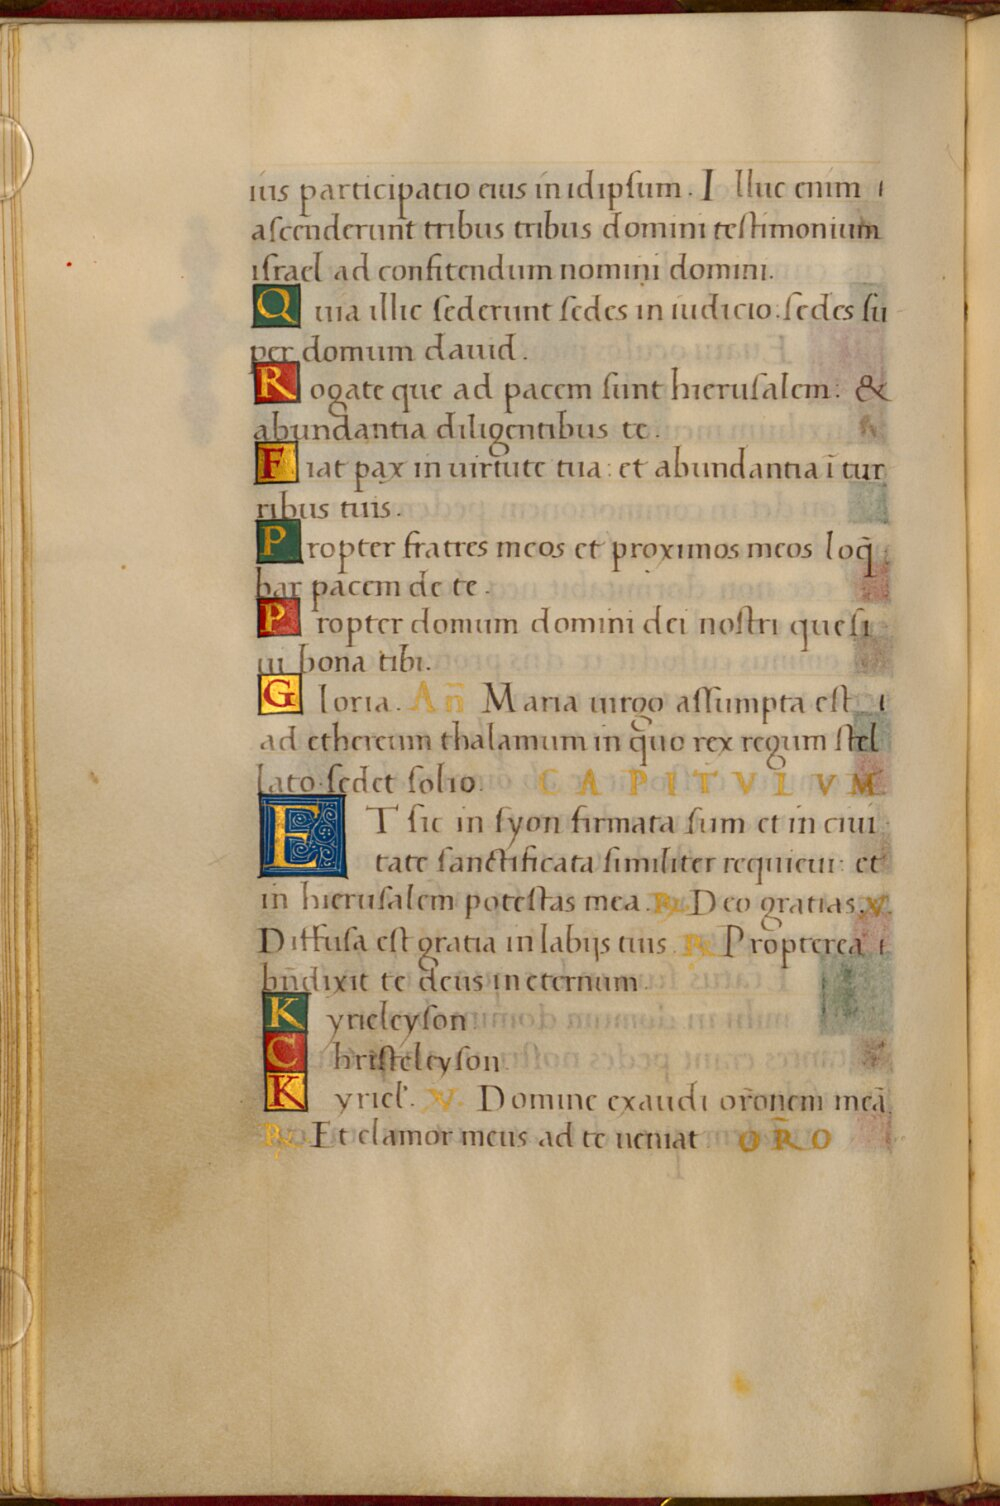 ius participatio eius in idipſum. I lluc enim
aſcenderunt tribus tribus domini teſtimonium
iſrael ad confitendum nomini domini.
Q uia illic ſederunt ſedes in iudicio: ſedes ſu
per domum dauid.
R ogate que ad pacem ſunt hieruſalem: &
abundantia diligentibus te.
F iat pax in uirtute tua: et abundantia ī tur
ribus tuis.
P ropter fratres meos et proximos meos loq̄
bar pacem de te.
P ropter domum domini dei noſtri queſi
ui bona tibi.
G loria. An̄ Maria uirgo aſſumpta eſt
ad ethereum thalamum in quo rex regum ſtel
lato ſedet ſolio. CAPITVLVM
ET ſic in ſyon firmata ſum et in ciui
tate ſanctificata ſimiliter requieui: et
in hieruſalem poteſtas mea. ℟. Deo gratias. V.
Diffuſa eſt gratia in labijs tuis. ℟. Propterea
bn̄dixit te deus in eternum.
K yrieleyſon
C hriſteleyſon
K yriel'. V. Domine exaudi or̄onem meā.
℟. Et clamor meus ad te ueniat. OR̄O